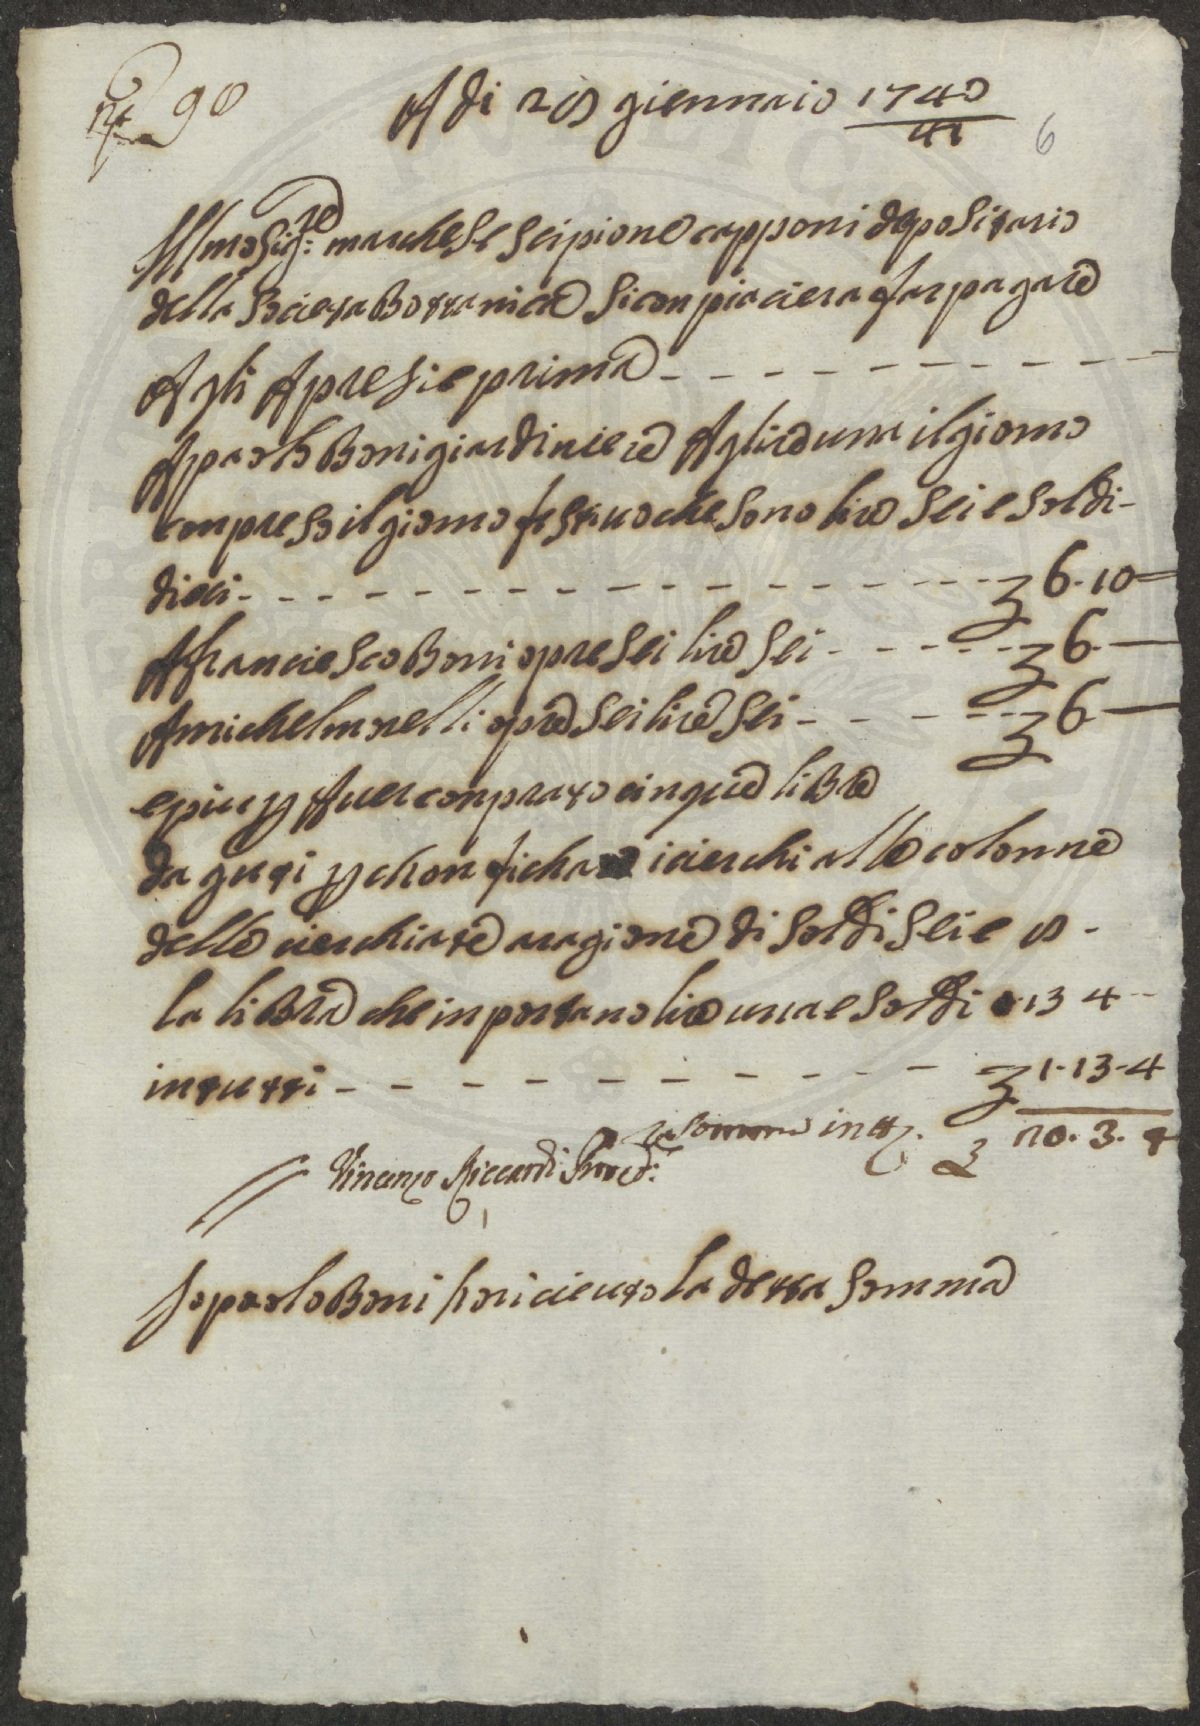 90
A di 28 giennaio 1740
41
6
Ill.mo Sig:re marchese Scipione capponi depositario
della Societa Bottanica Si conpiaciera far pagare
A gli Apresie prima
A paolo Boni giardiniere A lire una il giorno
conpreso il giorno festiuo che sono lire Sei e soldi
dieci 6.10
A franciesco Boni opre Sei lire Sei 6.
A michel melli opre Sei lire Sei 6
e piu per Auer conprato cinque libre
da guti per chonfichare i cierchi alle colonne
delle cierchiate a ragione di soldi Sei e 8
la libra che inportano lire una e soldi 13 4
in tutti 1.13.4
la Somma in tt. 20.3.4
Vincenzo Riccardi Proved:
Io paolo Boni ho riceuto la detta Somma